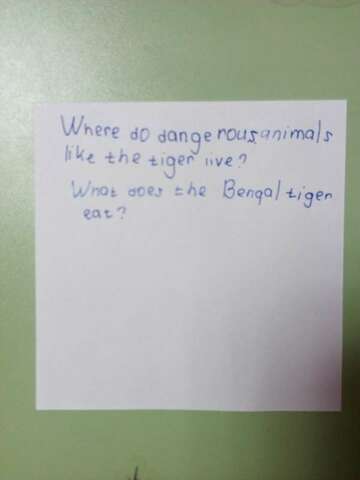 Where do dangerous animals
like the tiger live?
What does the Bengal tiger
eat?